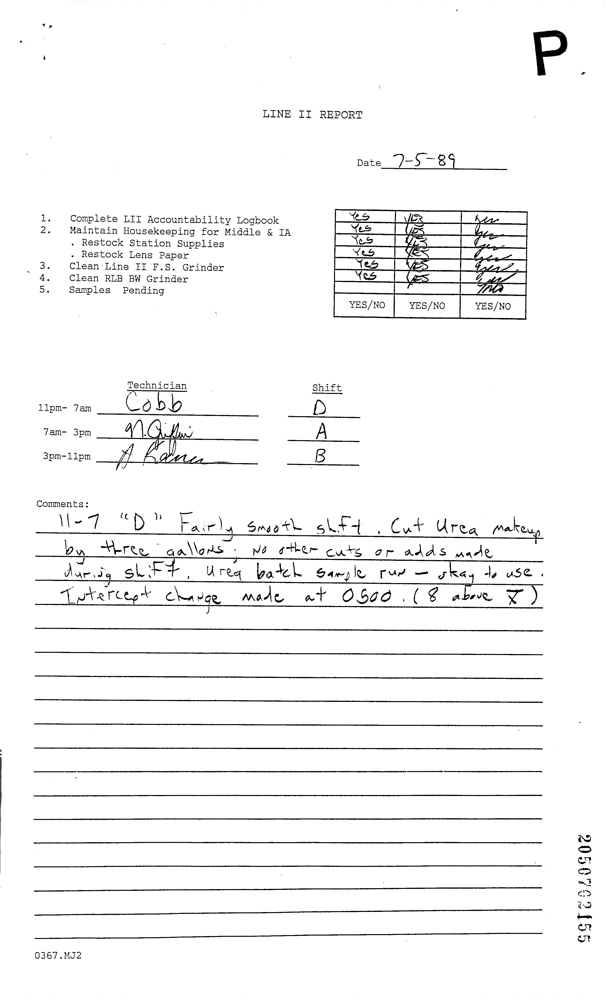 P
LINE II REPORT
Date 7-5-89
1. Complete LII Accountability Logbook
2. Maintain Housekeeping for Middle & IA
. Restock Station Supplies
. Restock Lens Paper
3. Clean Line II F.S. Grinder
4. Clean RLB BW Grinder
5. Samples Pending
Yes YES yes
Yes YES yes
Yes YES yes
Yes YES yes
Yes YES yes
Yes YES yes
no
YES/NO YES/NO YES/NO
Technician Shift
11pm- 7am Cobb D
7am- 3pm A
3pm-11pm B
Comments:
11-7 "D" Fairly smooth shift. Cut Urea makeup
by three gallons; no other cuts or adds made
during shift. Urea batch sample run - okay to use.
Intercept change made at 0500. (8 above X̄)
0367.MJ2
2050702155